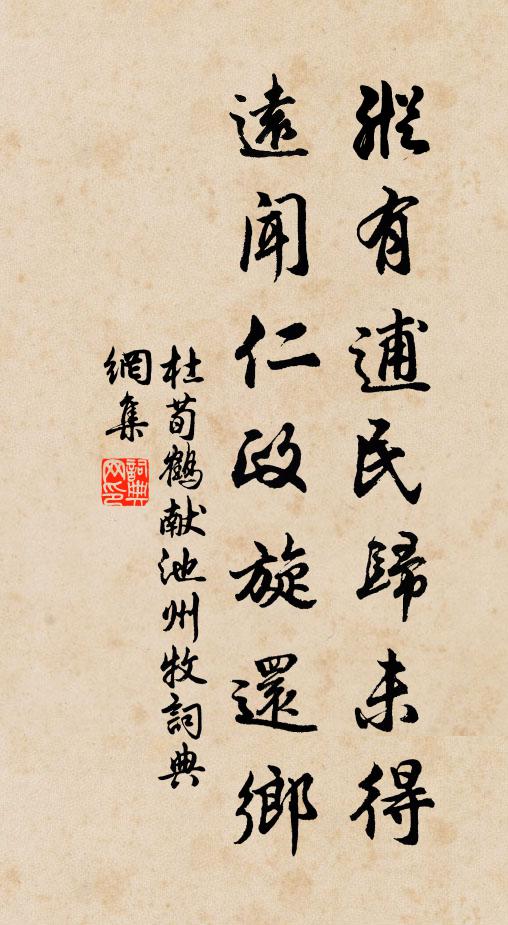 縱有逋民歸未得
遠聞仁政旋還鄉
杜荀鶴献池州牧詞典
網集
詞典
网印